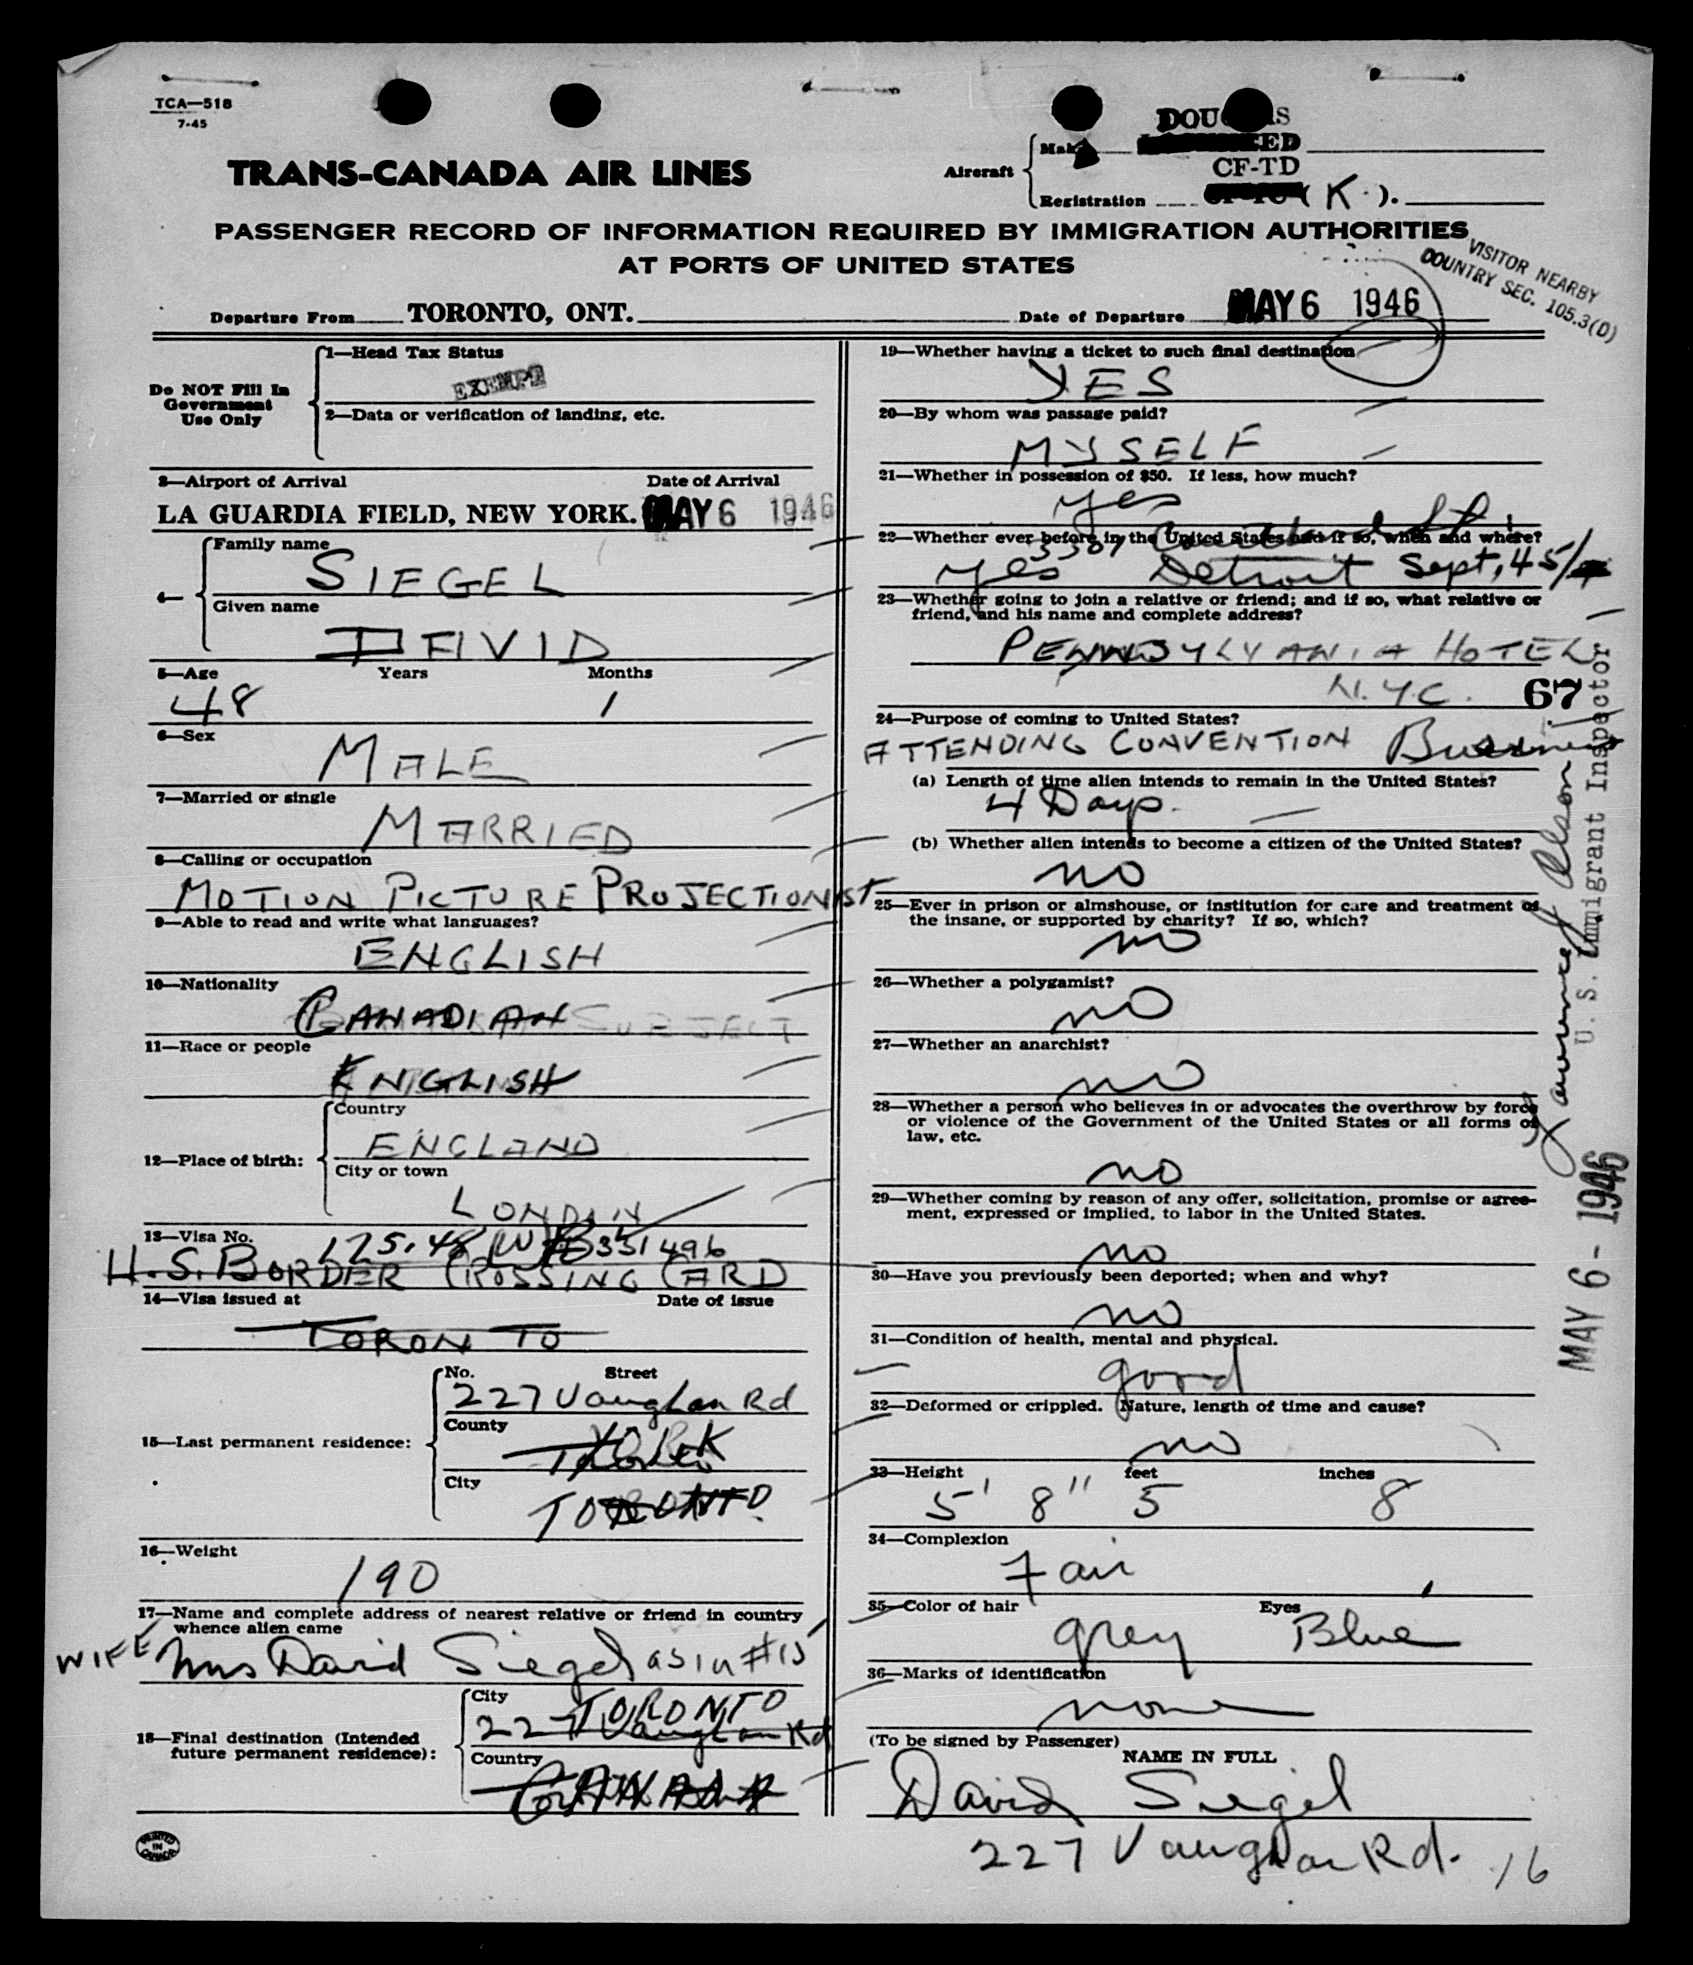 TCA—518
7-45
DOUGLAS
Make
CF-TD
Aircraft
Registration (K.).
TRANS-CANADA AIR LINES
PASSENGER RECORD OF INFORMATION REQUIRED BY IMMIGRATION AUTHORITIES
AT PORTS OF UNITED STATES
VISITOR NEARBY
COUNTRY SEC. 105.3(D)
Departure From TORONTO, ONT. Date of Departure MAY 6 1946
Do NOT Fill In
Government
Use Only
1—Head Tax Status
EXEMPT
2—Data or verification of landing, etc.
3—Airport of Arrival Date of Arrival
LA GUARDIA FIELD, NEW YORK. MAY 6 1946
4—
Family name
SIEGEL
Given name
DAVID
5—Age Years Months
48 1
6—Sex
MALE
7—Married or single
MARRIED
8—Calling or occupation
MOTION PICTURE PROJECTIONIST
9—Able to read and write what languages?
ENGLISH
10—Nationality
CANADIAN SUBJECT
11—Race or people
ENGLISH
12—Place of birth:
Country
ENGLAND
City or town
LONDON
13—Visa No.
BORDER CROSSING CARD
14—Visa issued at Date of issue
TORONTO
15—Last permanent residence:
No. Street
227 Vaughan Rd
County
YORK
City
TORONTO
16—Weight
190
17—Name and complete address of nearest relative or friend in country
whence alien came
WIFE Mrs David Siegel as in #15
18—Final destination (Intended
future permanent residence):
City
TORONTO
227 Vaughan Rd
Country
CANADA
PRINTED
IN
CANADA
19—Whether having a ticket to such final destination
YES
20—By whom was passage paid?
MYSELF
21—Whether in possession of $50. If less, how much?
yes
22—Whether ever before in the United States and if so, when and where?
yes Detroit Sept, 45
23—Whether going to join a relative or friend; and if so, what relative or
friend, and his name and complete address?
PENNSYLVANIA HOTEL
N.Y.C. 67
24—Purpose of coming to United States?
ATTENDING CONVENTION Business
(a) Length of time alien intends to remain in the United States?
4 Days.
(b) Whether alien intends to become a citizen of the United States?
no
25—Ever in prison or almshouse, or institution for care and treatment of
the insane, or supported by charity? If so, which?
no
26—Whether a polygamist?
no
27—Whether an anarchist?
no
28—Whether a person who believes in or advocates the overthrow by force
or violence of the Government of the United States or all forms of
law, etc.
no
29—Whether coming by reason of any offer, solicitation, promise or agree-
ment, expressed or implied, to labor in the United States.
no
30—Have you previously been deported; when and why?
no
31—Condition of health, mental and physical.
good
32—Deformed or crippled. Nature, length of time and cause?
no
33—Height feet inches
5' 8" 5 8
34—Complexion
Fair
35—Color of hair Eyes
grey Blue
36—Marks of identification
none
(To be signed by Passenger)
NAME IN FULL
David Siegel
227 Vaughan Rd. 16
U. S. Immigrant Inspector
MAY 6 - 1946